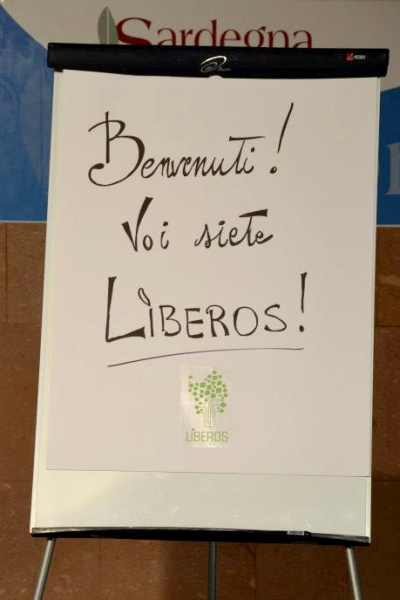 Sardegna
Benvenuti!
Voi siete
LÌBEROS!
LÌBEROS